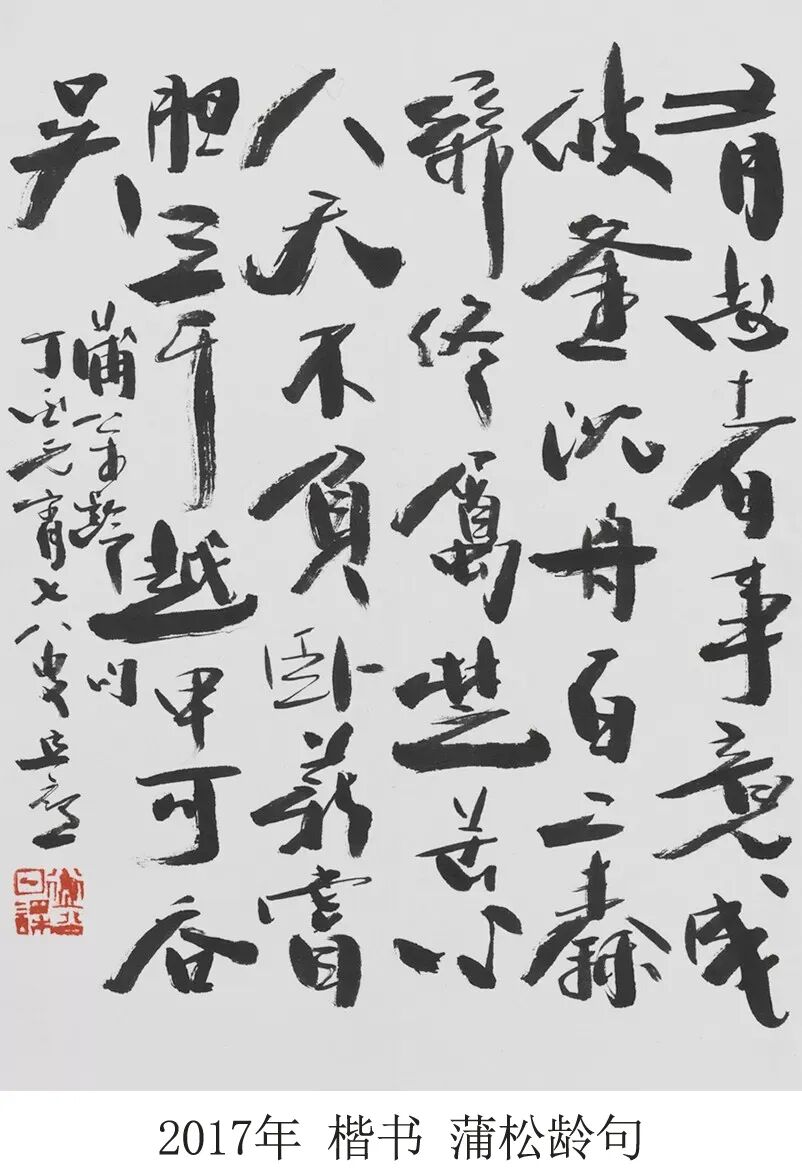 有志者事竟成
破釜沈舟百二秦
關終属楚苦心
人天不負卧薪嘗
胆三千越甲可吞
吴
蒲松齡句
丁酉元宵七八叟
日課
2017年 楷书 蒲松龄句